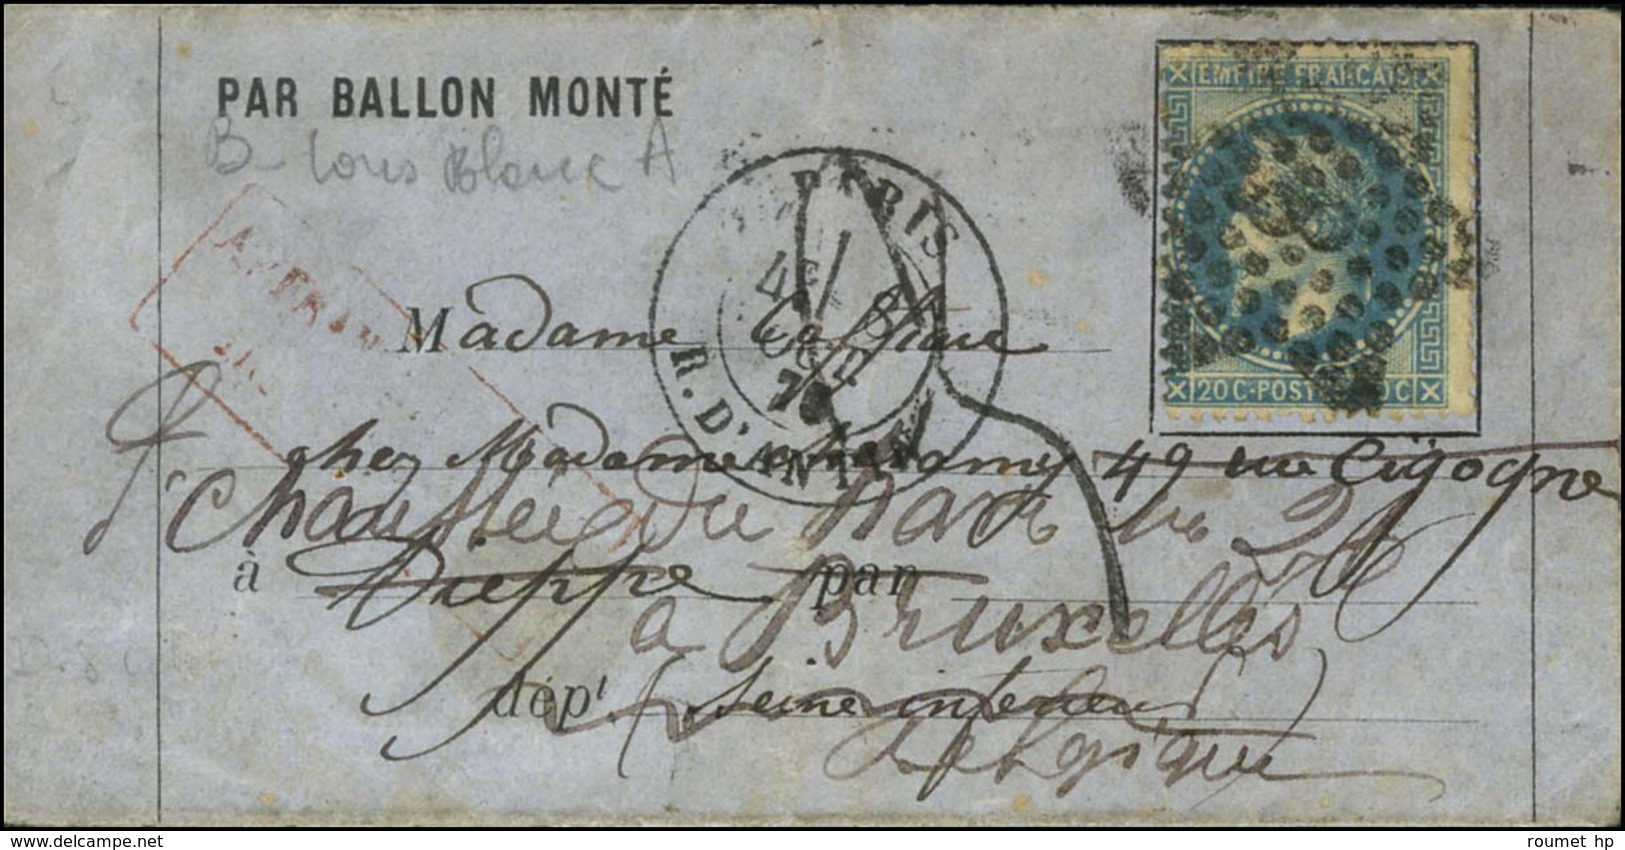 PAR BALLON MONTÉ
B Louis Blanc A
EMPIRE FRANÇAIS
20 C-POSTES 20 C
PARIS
R. D'ANTIN
4E
8
OCT.
70
AFFRAN
INS
Madame
chez Madame 49 rue Cigogne
Chaussée de 24
à Dieppe par
à Bruxelles
dépt Seine inférieure
Belgique
delcampe.net
roumet hp